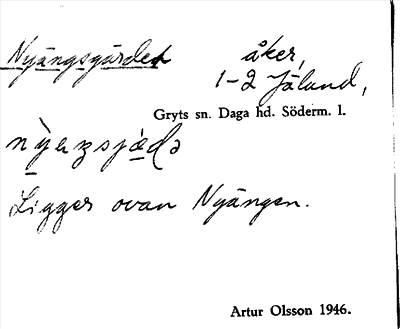 Nyängsgärdet åker,
1-2 Jäland,
Gryts sn. Daga hd. Söderm. l.
Ligger ovan Nyängen.
Artur Olsson 1946.